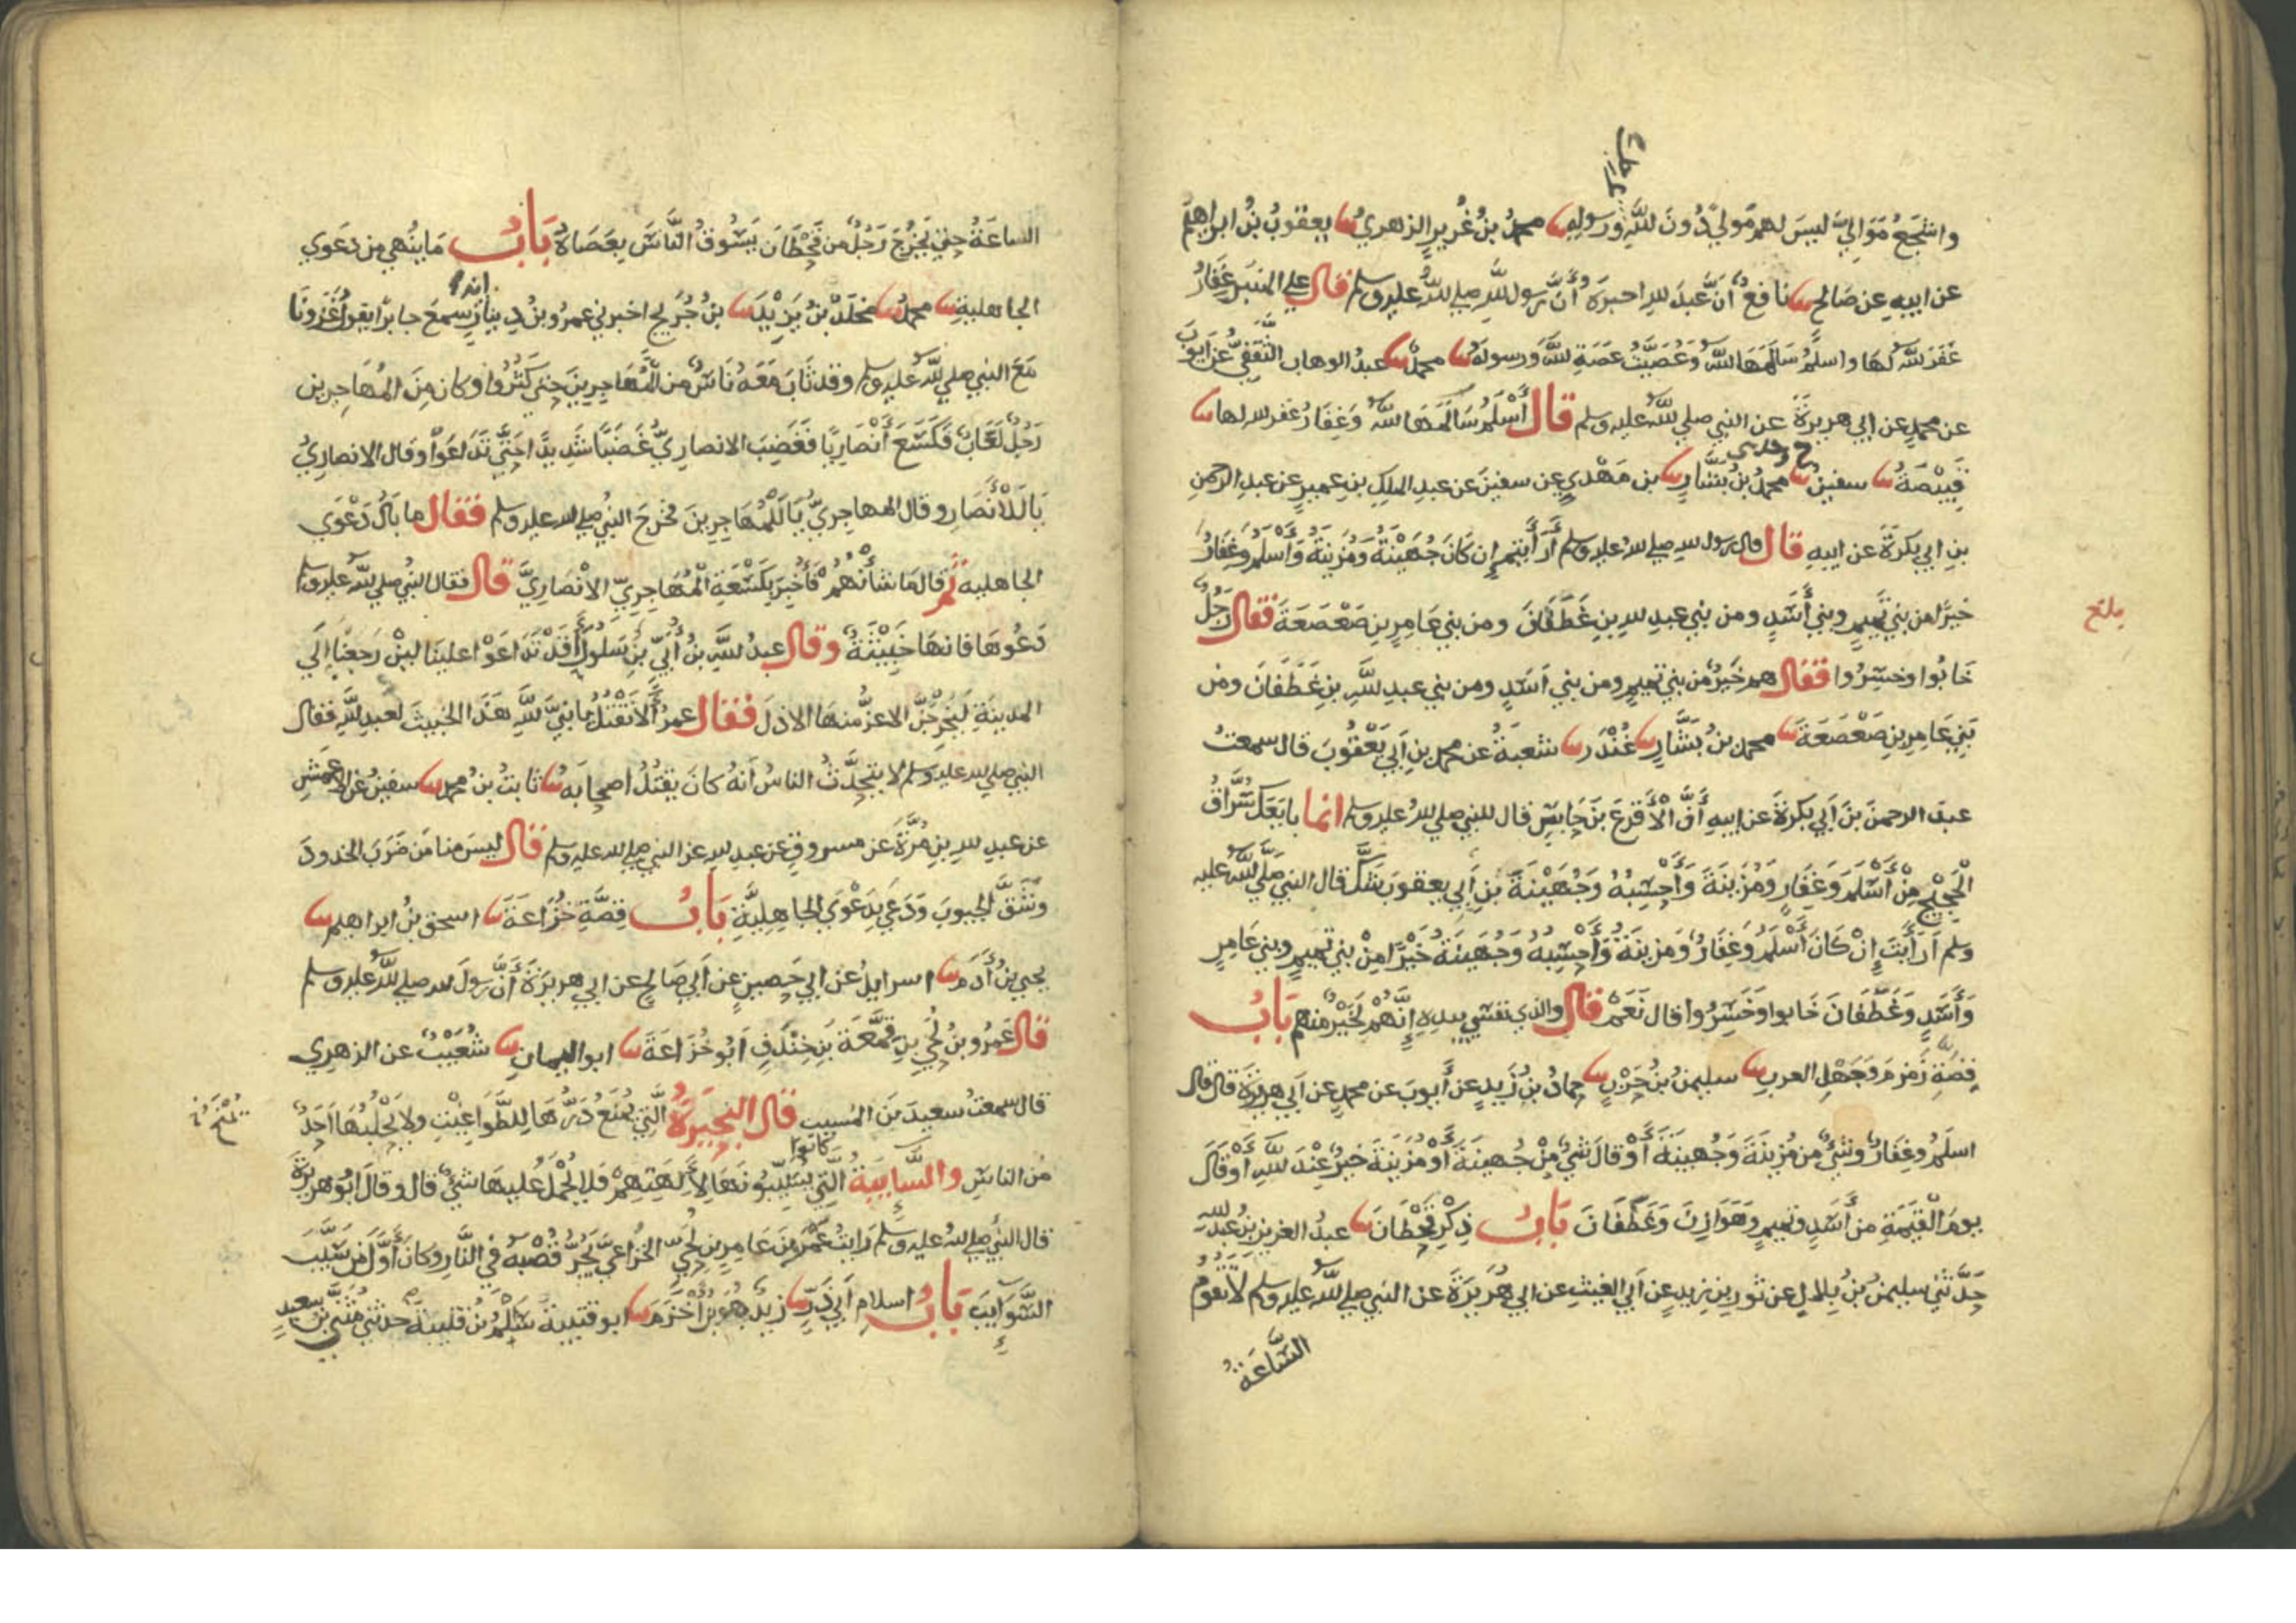 واشجع مَوَالِيَّ ليسَ لهم مَولىً دُونَ اللهِ ورسولِهِ محمدُ بنُ غُرَيرٍ الزهريُّ يعقوبُ بنُ ابراهيمَ
عن ابيهِ عن صَالحٍ نافعٌ أنَّ عبدَ اللهِ اخبرَهُ أنَّ رسول الله صلى الله عليه وسلم قال على المنبرِ غِفَارُ
غَفَرَ اللهُ لهَا واسلَمُ سَالَمَهَا اللهُ وَعُصَيَّةُ عَصَتِ اللهَ وَرسولَهُ محمدٌ عبدُ الوهاب الثَّقَفِيُّ عن ايوبَ
عن محمدٍ عن ابي هريرةَ عن النبي صلى الله عليه وسلم قال أَسْلَمُ سَالَمَهَا اللهُ وَغِفَارُ غفر الله لها
قَبِيْصَةُ سفينُ ح وحدثني محمدُ بنُ بشَّارٍ بن مَهْدِيٍ عن سفينَ عن عبدِ الملكِ بنِ عميرٍ عن عبدِ الرحمنِ
بنِ ابي بكرةَ عن ابيهِ قال قال رسول الله صلى الله عليه وسلم أَرَأَيتم إِن كَانَ جُهَيْنَةُ وَمُزينَةُ وَأَسْلَمُ وَغِفَارُ
خيرًا من بني تَميمٍ وبني أَسَدٍ ومن بني عبدِ اللهِ بنِ غَطَفَانَ ومن بني عَامِرِ بنِ صَعْصَعَةَ فقال رَجُلٌ
خَابُوا وخسِرُوا فقال هم خَيْرٌ من بني تميمٍ ومن بني اَسَدٍ ومن بني عبدِ اللهِ بنِ غَطَفَانَ ومن
بَنِي عَامِرِ بنِ صَعْصَعَةَ محمد بنُ بَشَّارٍ غُنْدَر شعبةُ عن محمدِ بنِ اَبي يَعْقُوبَ قال سمعتُ
عبدَ الرحمنَ بنَ اَبي بكرةَ عن ابيهِ أَنَّ الأَقرَعَ بنَ حَابسٍ قال للنبي صلى الله عليه وسلم انما بايعَكَ سُرَّاقُ
الْحَجِيْجِ مِنْ أَسْلَمَ وَغِفَارٍ وَمُزَينَةَ وَأَحْسِبُهُ وَجُهَيْنَةَ بن اَبي يعقوبَ شَكَّ قال النبي صَلَّى اللهُ عليه
وسلم اَرَأَيتَ إِنْ كَانَ أَسْلَمُ وَغِفَارُ وَمُزينَةُ وَأَحْسِبُهُ وَجُهَينَةُ خَيْرًا مِنْ بني تميمٍ وبني عَامِرٍ
وَأَسَدٍ وَغَطَفَانَ خَابوا وَخَسِرُوا قال نَعَمْ قال والذي نفسي بيدهِ إِنَّهُمْ لَخَيْرٌ منهم بَابُ
قِصَّةِ زَمزمَ وَجَهْلِ العربِ سليمنُ بنُ حَرْبٍ حمادُ بنُ زَيدٍ عن أَيوبَ عن محمدٍ عن اَبي هريرَةَ قال قال
اسلَمُ وغِفَارُ وشيءٌ من مُزينَةَ وَجُهَينَةَ أَوْ قالَ شيءٌ مِنْ جُهينَةَ أَوْ مُزَينَةَ خيرٌ عِنْدَ اللهِ أَوْ قَالَ
يومَ الْقِيمَةِ من أَسَدٍ وتميمٍ وَهَوَازِنَ وَغَطَفَانَ بَابُ ذِكْرِ قَحْطَانَ عبدُ العزيزِ بنُ عبدِ اللهِ
حَدَّثَني سليمنُ بنُ بِلالٍ عن ثَورِ بنِ زيدٍ عن اَبي الغيثِ عن ابي هُرَيرَةَ عن النبي صلى الله عليه وسلم لاَ تَقُومُ
السَّاعَةُ
بلغ
الساعَةُ حتى يَخْرُجَ رَجُلٌ من قَحْطَانَ يَسُوقُ النَّاسَ بِعَصَاهُ بَابُ مَا يُنْهى من دَعوى
الجاهليةِ محمدٌ مَخلَدُ بنُ يَزِيْدَ بنُ جُرَيجٍ اخبرني عمرُو بنُ دِينارٍ انه سمعَ جابرًا يقولُ غَزَونَا
مَعَ النبي صلى الله عليه وسلم وقد ثَابَ مَعَهُ نَاسٌ من المُهَاجِرِينَ حتى كَثُرُوا وكان مِنَ المُهَاجرين
رَجُلٌ لَعَّابٌ فَكَسَعَ أَنْصَارِيًّا فَغَضِبَ الانصاريُّ غَضَبًا شَدِيدًا حَتَّى تَدَاعَوْا وقال الانصاريُّ
يَا لَلأَنْصَارِ وقال المهاجِريُّ يَا لَلْمُهَاجِرِينَ فخرجَ النبيُّ صلى الله عليه وسلم فقال ما بَالُ دَعْوَى
الجاهلية ثم قال مَا شَأْنُهُمْ فَأُخْبِرَ بِكَسْعَةِ الْمُهَاجِرِيّ الاَنْصَارِيَّ قال فقال النبي صلى الله عليه وسلم
دَعُوهَا فانهَا خَبِيْثَةٌ وقال عبدُ اللهِ بنُ أُبَيِّ بنِ سَلُولَ أَقَدْ تَدَاعَوْا علينَا لئن رَجعْنَا إِلَى
المدينَةِ لَيُخْرِجَنَّ الاعزُّ منهَا الاذلَ فقال عمرُ أَلاَ نَقْتُلُ يا نبيَّ اللهِ هَذَا الخبيثَ لعبدِ اللهِ فقال
النبي صلى الله عليه وسلم لا يتحدَّثُ الناسُ اَنهُ كانَ يَقتُلُ اصحابَهُ ثابتُ بنُ محمدٍ سفينُ عن الاعمشِ
عن عبدِ اللهِ بنِ مُرَّةَ عن مسروقٍ عن عبدِ اللهِ عن النبي صلى الله عليه وسلم قال ليسَ منا مَن ضَرَبَ الخدودَ
وَشَقَّ الجيوبَ وَدَعَى بِدَعْوَى الجاهِلِيَّةِ بَابُ قِصَّةِ خُزَاعَةَ اسحق بنُ ابراهيم
يحيى بنُ أَدَمَ اسرايلُ عن ابي حَصينٍ عن اَبي صَالحٍ عن ابي هريرةَ أَنَّ رسولَ الله صلى الله عليه وسلم
قال عَمرُو بنُ لُحَيِّ بنِ قَمَعَةَ بنِ خِنْدَفَ اَبُو خُزَاعَةَ ابو اليمانِ شُعَيْبٌ عن الزهري
قال سمعتُ سعيدَ بنَ المُسيبِ قال البحيرَةُ الَّتي يُمنَعُ دَرُّهَا لِلطَّواغيْتِ ولا يَحْلُبُهَا اَحَدٌ
مِن الناسِ والسَّايبةُ الَّتي كانوا يُسَيِّبُونَهَا لآِلِهَتِهِمْ فَلا يُحْمَلُ عليهَا شيءٌ قال وقالَ ابُو هريرَةَ
قال النبي صلى الله عليه وسلم رَايتُ عَمْرَو بنَ عَامِرِ بنِ لُحَيٍّ الخزاعيَّ يَجُرُّ قُصْبَهُ في النَّارِ وكَانَ أَوَّلَ مَن سَيَّبَ
السَّوَايِبَ بَابُ اسلامِ اَبي ذَرٍّ زيدٌ هُوَ بنُ أَخْزَمَ ابو قتيبة سَلْمُ بنُ قتيبةَ حدثني مُثَنَّى بنُ سعيدٍ